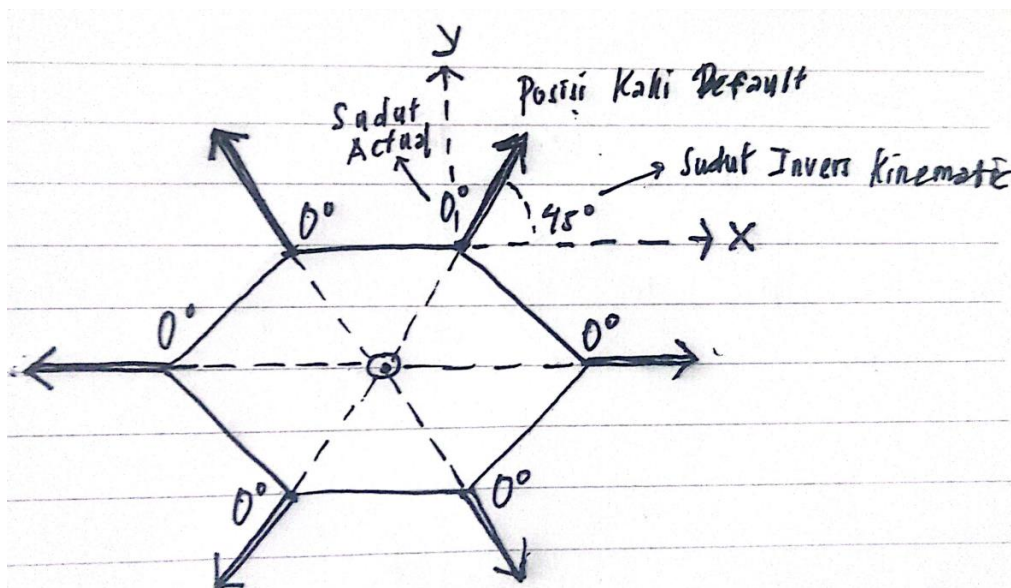 y
Posisi Kaki Default
Sudut
Actual
Sudut Invers Kinematic
0°
0°
45°
X
0°
0°
0°
0°